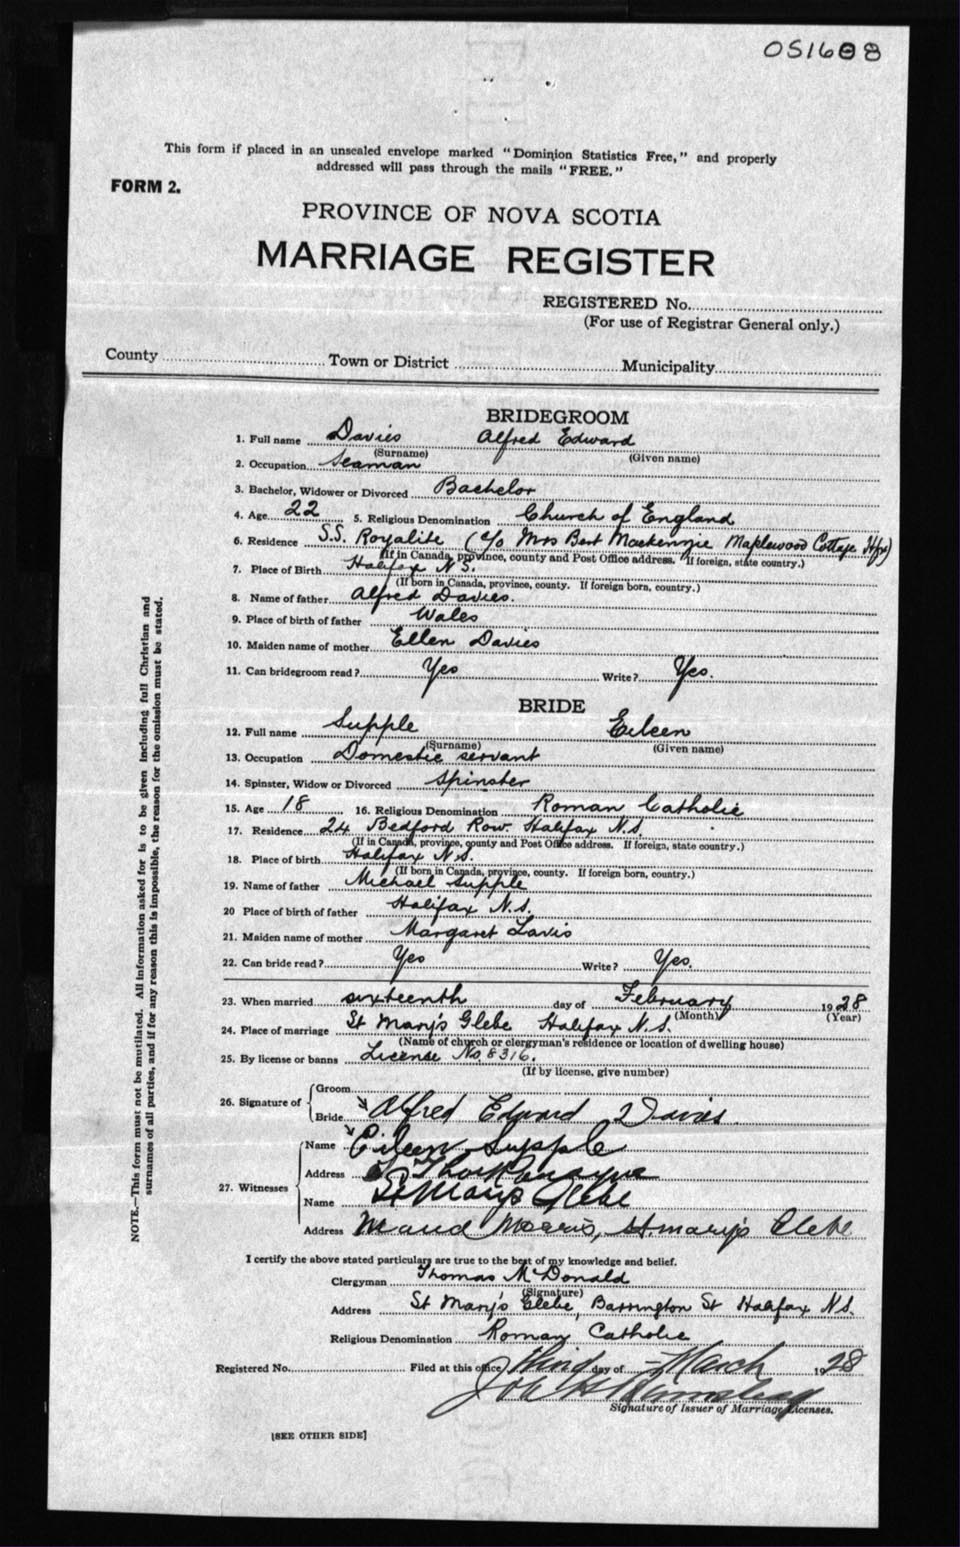 OS1608
This form if placed in an unsealed envelope marked "Dominion Statistics Free," and properly
addressed will pass through the mails "FREE."
FORM 2.
PROVINCE OF NOVA SCOTIA
MARRIAGE REGISTER
REGISTERED No.
(For use of Registrar General only.)
County Town or District Municipality
BRIDEGROOM
1. Full name Davies Alfred Edward
(Surname) (Given name)
2. Occupation Seaman
3. Bachelor, Widower or Divorced Bachelor
4. Age 22 5. Religious Denomination Church of England
6. Residence S.S. Royalite (c/o Mrs Bert Mackenzie Maplewood Cottage Hfx)
(If in Canada, province, county and Post Office address. If foreign, state country.)
7. Place of Birth Halifax N.S.
(If born in Canada, province, county. If foreign born, country.)
8. Name of father Alfred Davies.
9. Place of birth of father Wales
10. Maiden name of mother Ellen Davies
11. Can bridegroom read? Yes Write? Yes.
BRIDE
12. Full name Supple Eileen
(Surname) (Given name)
13. Occupation Domestic servant
14. Spinster, Widow or Divorced Spinster
15. Age 18 16. Religious Denomination Roman Catholic
17. Residence 24 Bedford Row. Halifax N.S.
(If in Canada, province, county and Post Office address. If foreign, state country.)
18. Place of birth Halifax N.S.
(If born in Canada, province, county. If foreign born, country.)
19. Name of father Michael Supple
20 Place of birth of father Halifax N.S.
21. Maiden name of mother Margaret Lavis
22. Can bride read? Yes Write? Yes.
23. When married sixteenth day of February 1928
(Month) (Year)
24. Place of marriage St Mary's Glebe Halifax N.S.
(Name of church or clergyman's residence or location of dwelling house)
25. By license or banns License No. 8316.
(If by license, give number)
26. Signature of Groom
Bride Alfred Edward Davies
27. Witnesses Name Eileen Supple
Address
Name St Marys Glebe
Address Maud Morris, St. Mary's Glebe
I certify the above stated particulars are true to the best of my knowledge and belief.
Clergyman Thomas McDonald
(Signature)
Address St Mary's Glebe, Barrington St Halifax N.S.
Religious Denomination Roman Catholic
Registered No. Filed at this office third day of March 1928
Signature of Issuer of Marriage Licenses.
[SEE OTHER SIDE]
NOTE.—This form must not be mutilated. All information asked for is to be given including full Christian and
surnames of all parties, and if for any reason this is impossible, the reason for the omission must be stated.